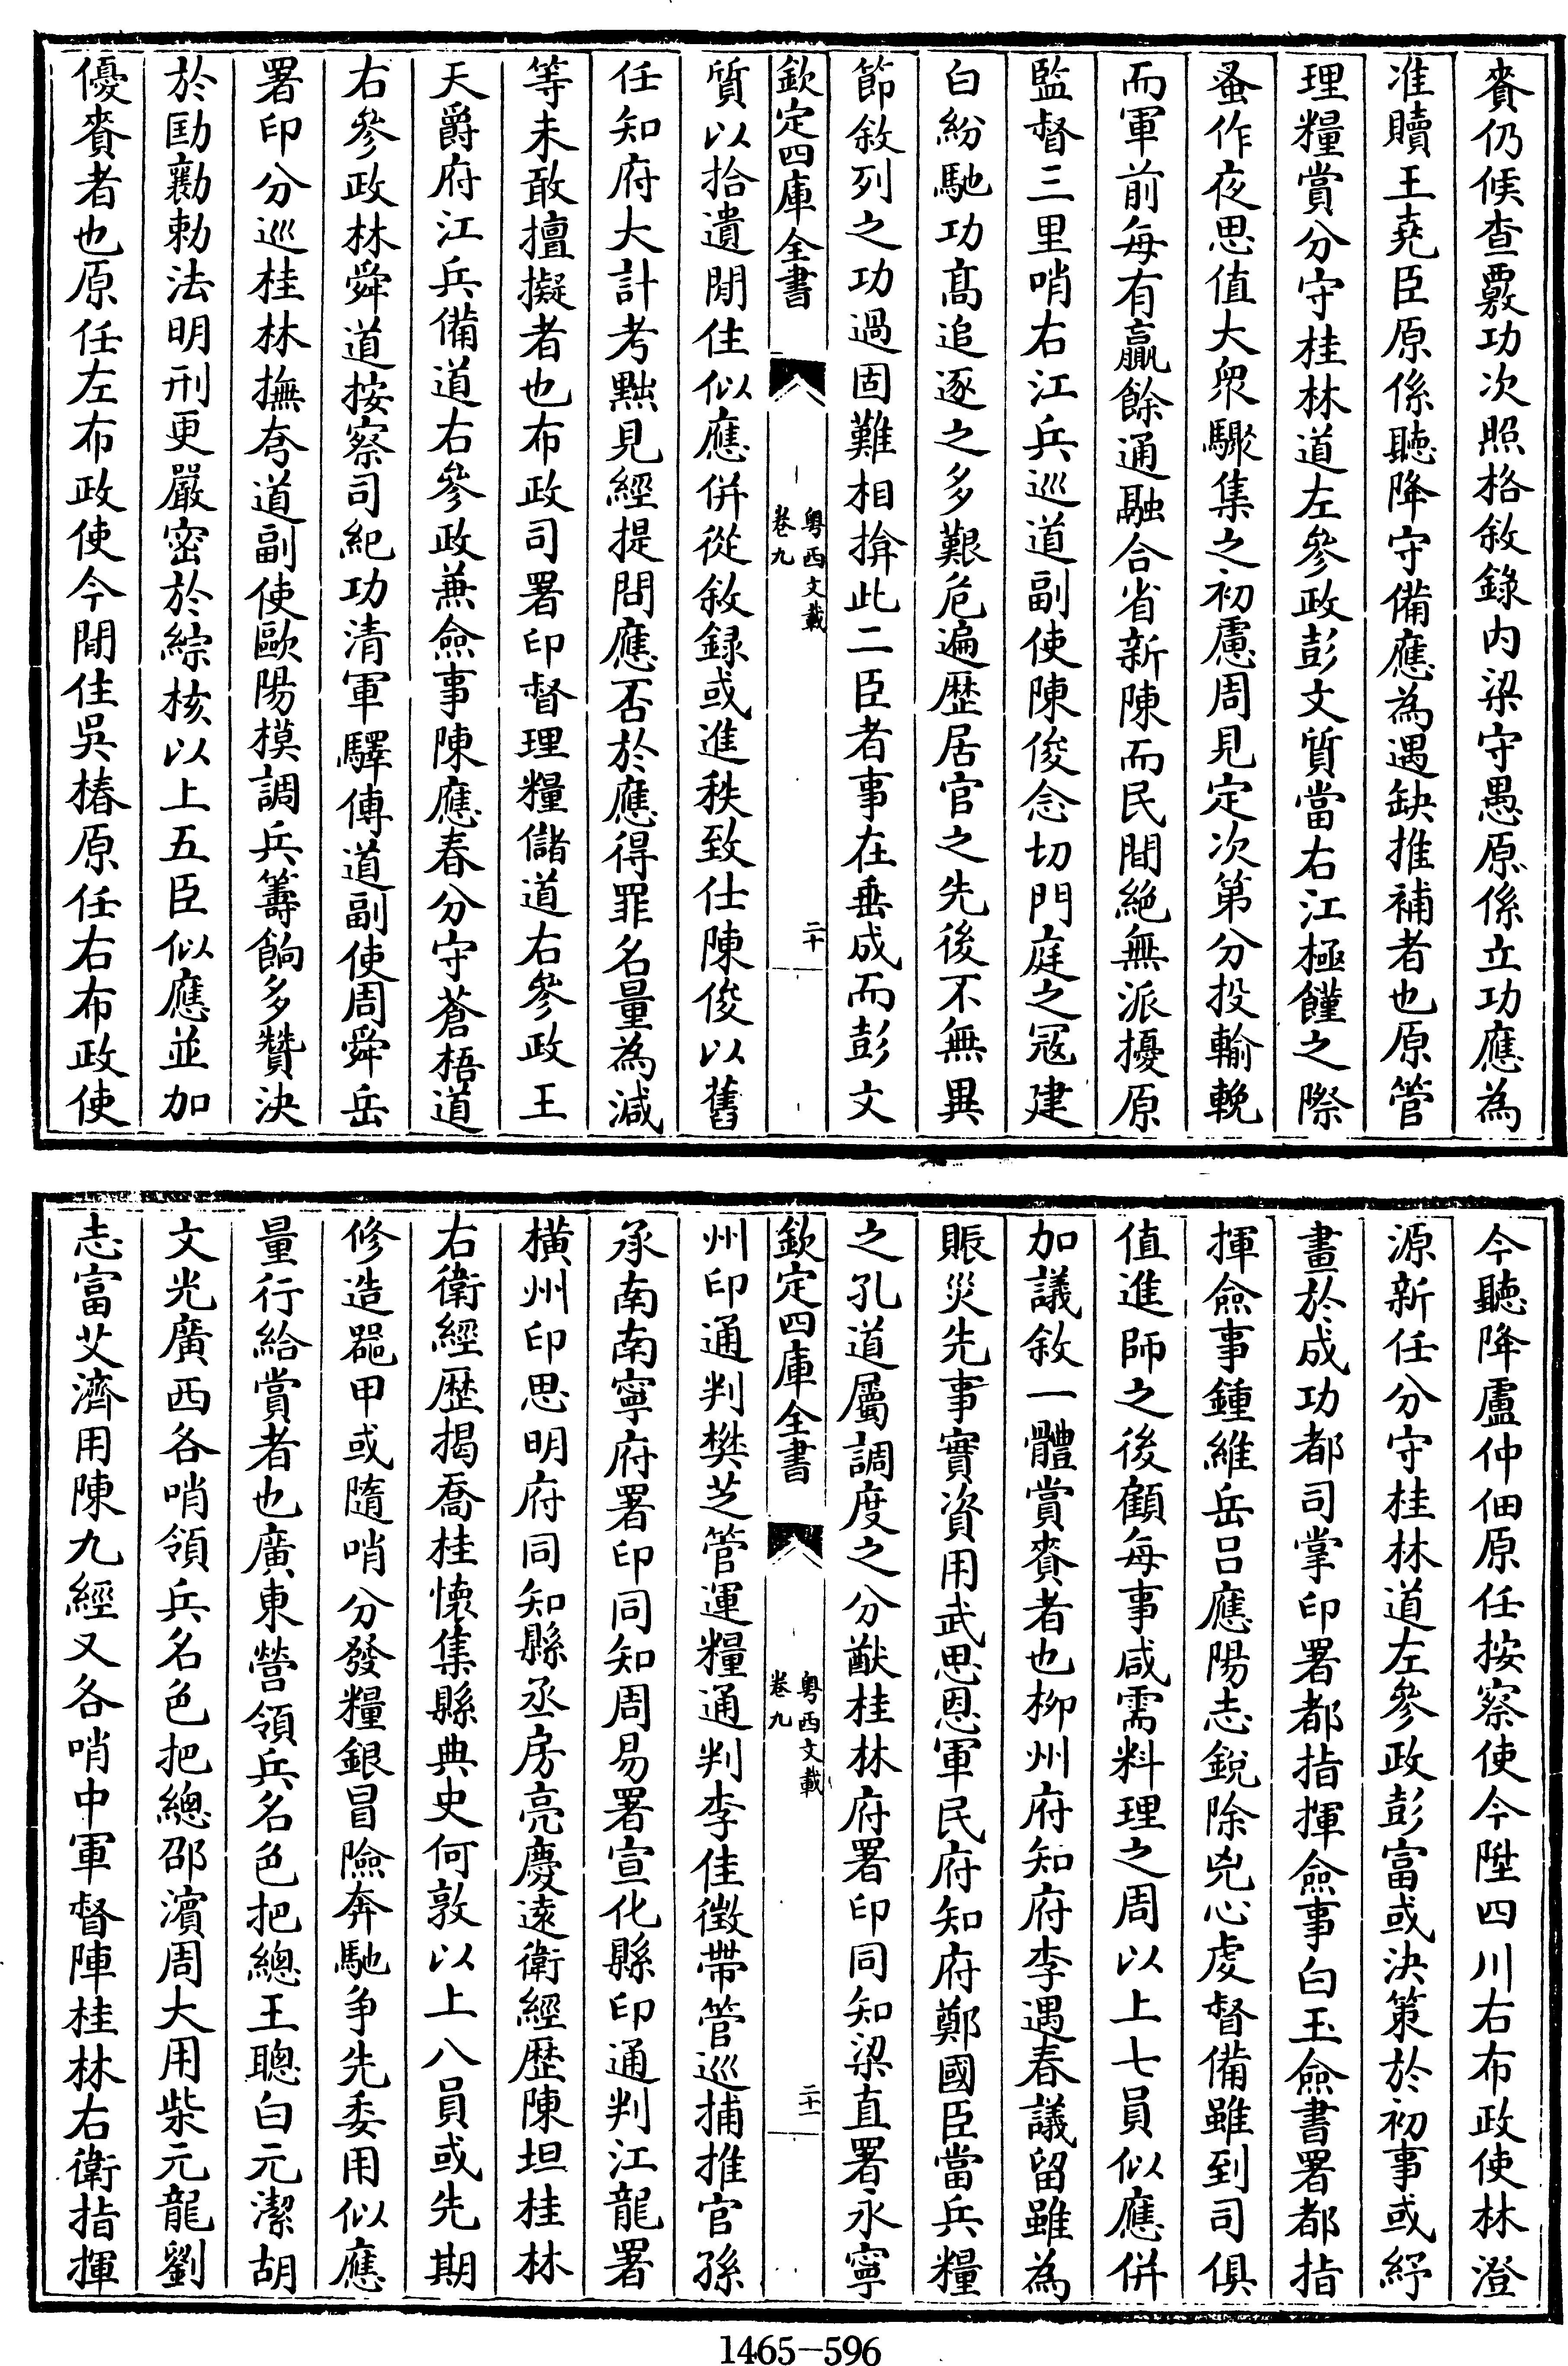 賚仍候查覈功次照格敘錄内梁守愚原係立功應為
准贖王堯臣原係聽降守備應為遇缺推補者也原管
理糧賞分守桂林道左參政彭文質當右江極饉之際
蚤作夜思值大衆驟集之初慮周見定次第分投輸輓
而軍前每有贏餘通融合省新陳而民間絶無派擾原
監督三里哨右江兵巡道副使陳俊念切門庭之冦建
白紛馳功髙追逐之多艱危遍歴居官之先後不無異
節敘列之功過固難相揜此二臣者事在垂成而彭文
欽定四庫全書
粤西文載
卷九
二十
質以拾遺閒住似應併從敘録或進秩致仕陳俊以舊
任知府大計考黜見經提問應否於應得罪名量為減
等未敢擅擬者也布政司署印督理糧儲道右參政王
天爵府江兵備道右參政兼僉事陳應春分守蒼梧道
右參政林舜道按察司紀功清軍驛傳道副使周舜岳
署印分巡桂林撫夸道副使歐陽模調兵籌餉多贊決
於劻勷勅法明刑更嚴密於綜核以上五臣似應並加
優賚者也原任左布政使今閒住吳椿原任右布政使
今聽降盧仲佃原任按察使今陞四川右布政使林澄
源新任分守桂林道左參政彭富或決策於初事或紓
畫於成功都司掌印署都指揮僉事白玉僉書署都指
揮僉事鍾維岳吕應陽志銳除兇心虔督備雖到司俱
值進師之後顧每事咸需料理之周以上七員似應併
加議敘一體賞賚者也柳州府知府李遇春議留雖為
賑災先事實資用武思恩軍民府知府鄭國臣當兵糧
之孔道屬調度之分猷桂林府署印同知梁直署永寧
欽定四庫全書
粤西文載
卷九
二十一
州印通判樊芝管運糧通判李佳徵帶管巡捕推官孫
承南南寧府署印同知周易署宣化縣印通判江龍署
橫州印思明府同知縣丞房亮慶逺衛經歴陳坦桂林
右衛經歴揭喬桂懐集縣典史何敦以上八員或先期
修造噐甲或隨哨分發糧銀冒險奔馳爭先委用似應
量行給賞者也廣東營領兵名色把總王聰白元潔胡
文光廣西各哨領兵名色把總邵濵周大用柴元龍劉
志富艾濟用陳九經又各哨中軍督陣桂林右衛指揮
1465-596